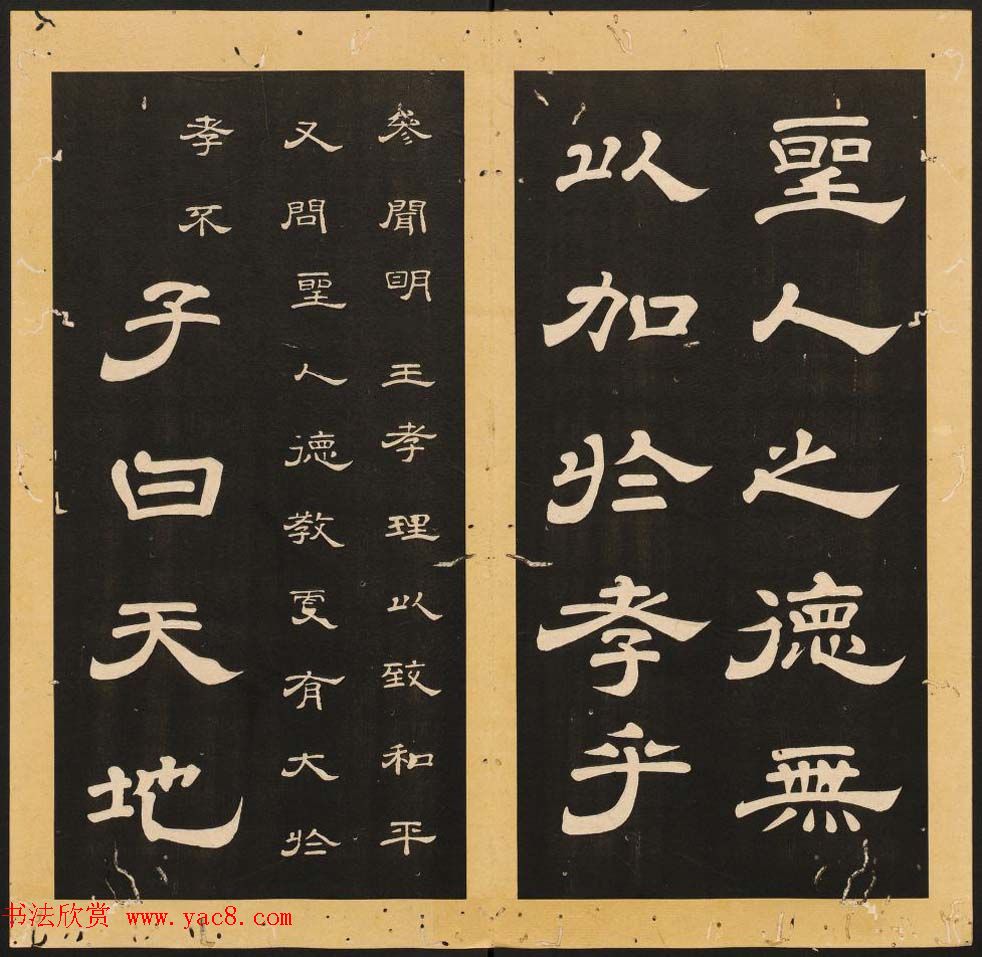 聖人之德無
以加於孝乎
參聞明王孝理以致和平
又問聖人德教更有大於
孝不
子曰天地
书法欣赏 www.yac8.com